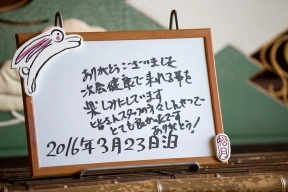 ありがとうございました
次会健康で来れる事を
楽しみにしています
皆さんスタッフの方々しんせつで
とても良かったです
ありがとう!
2016年3月23日泊